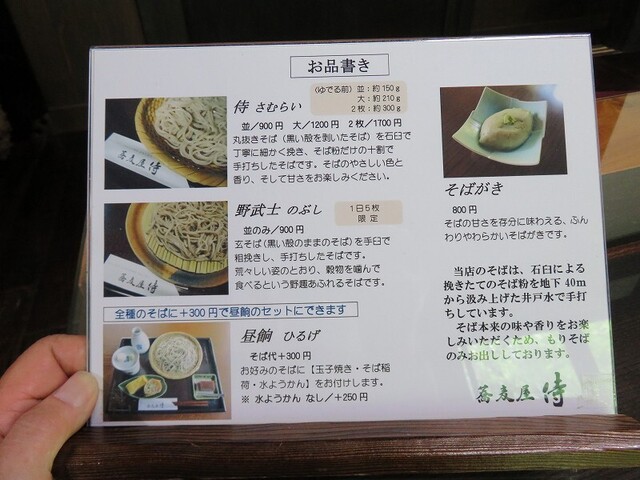 お品書き
侍 さむらい
(ゆでる前) 並：約150g
大：約210g
2枚：約300g
並／900円 大／1200円 2枚／1700円
丸抜きそば（黒い殻を剥いたそば）を石臼で
丁寧に細かく挽き、そば粉だけの十割で
手打ちしたそばです。そばのやさしい色と
香り、そして甘さをお楽しみください。
蕎麦屋 侍
野武士 のぶし
1日5枚
限定
並のみ／900円
玄そば（黒い殻のままのそば）を手臼で
粗挽きし、手打ちしたそばです。
荒々しい姿のとおり、穀物を噛んで
食べるという野趣あふれるそばです。
蕎麦屋 侍
全種のそばに＋300円で昼餉のセットにできます
昼餉 ひるげ
そば代＋300円
お好みのそばに【玉子焼き・そば稲
荷・水ようかん】をお付けします。
※ 水ようかん なし／＋250円
そばがき
800円
そばの甘さを存分に味わえる、ふん
わりやわらかいそばがきです。
当店のそばは、石臼による
挽きたてのそば粉を地下40m
から汲み上げた井戸水で手打
ちしています。
そば本来の味や香りをお楽
しみいただくため、もりそば
のみお出ししております。
蕎麦屋 侍